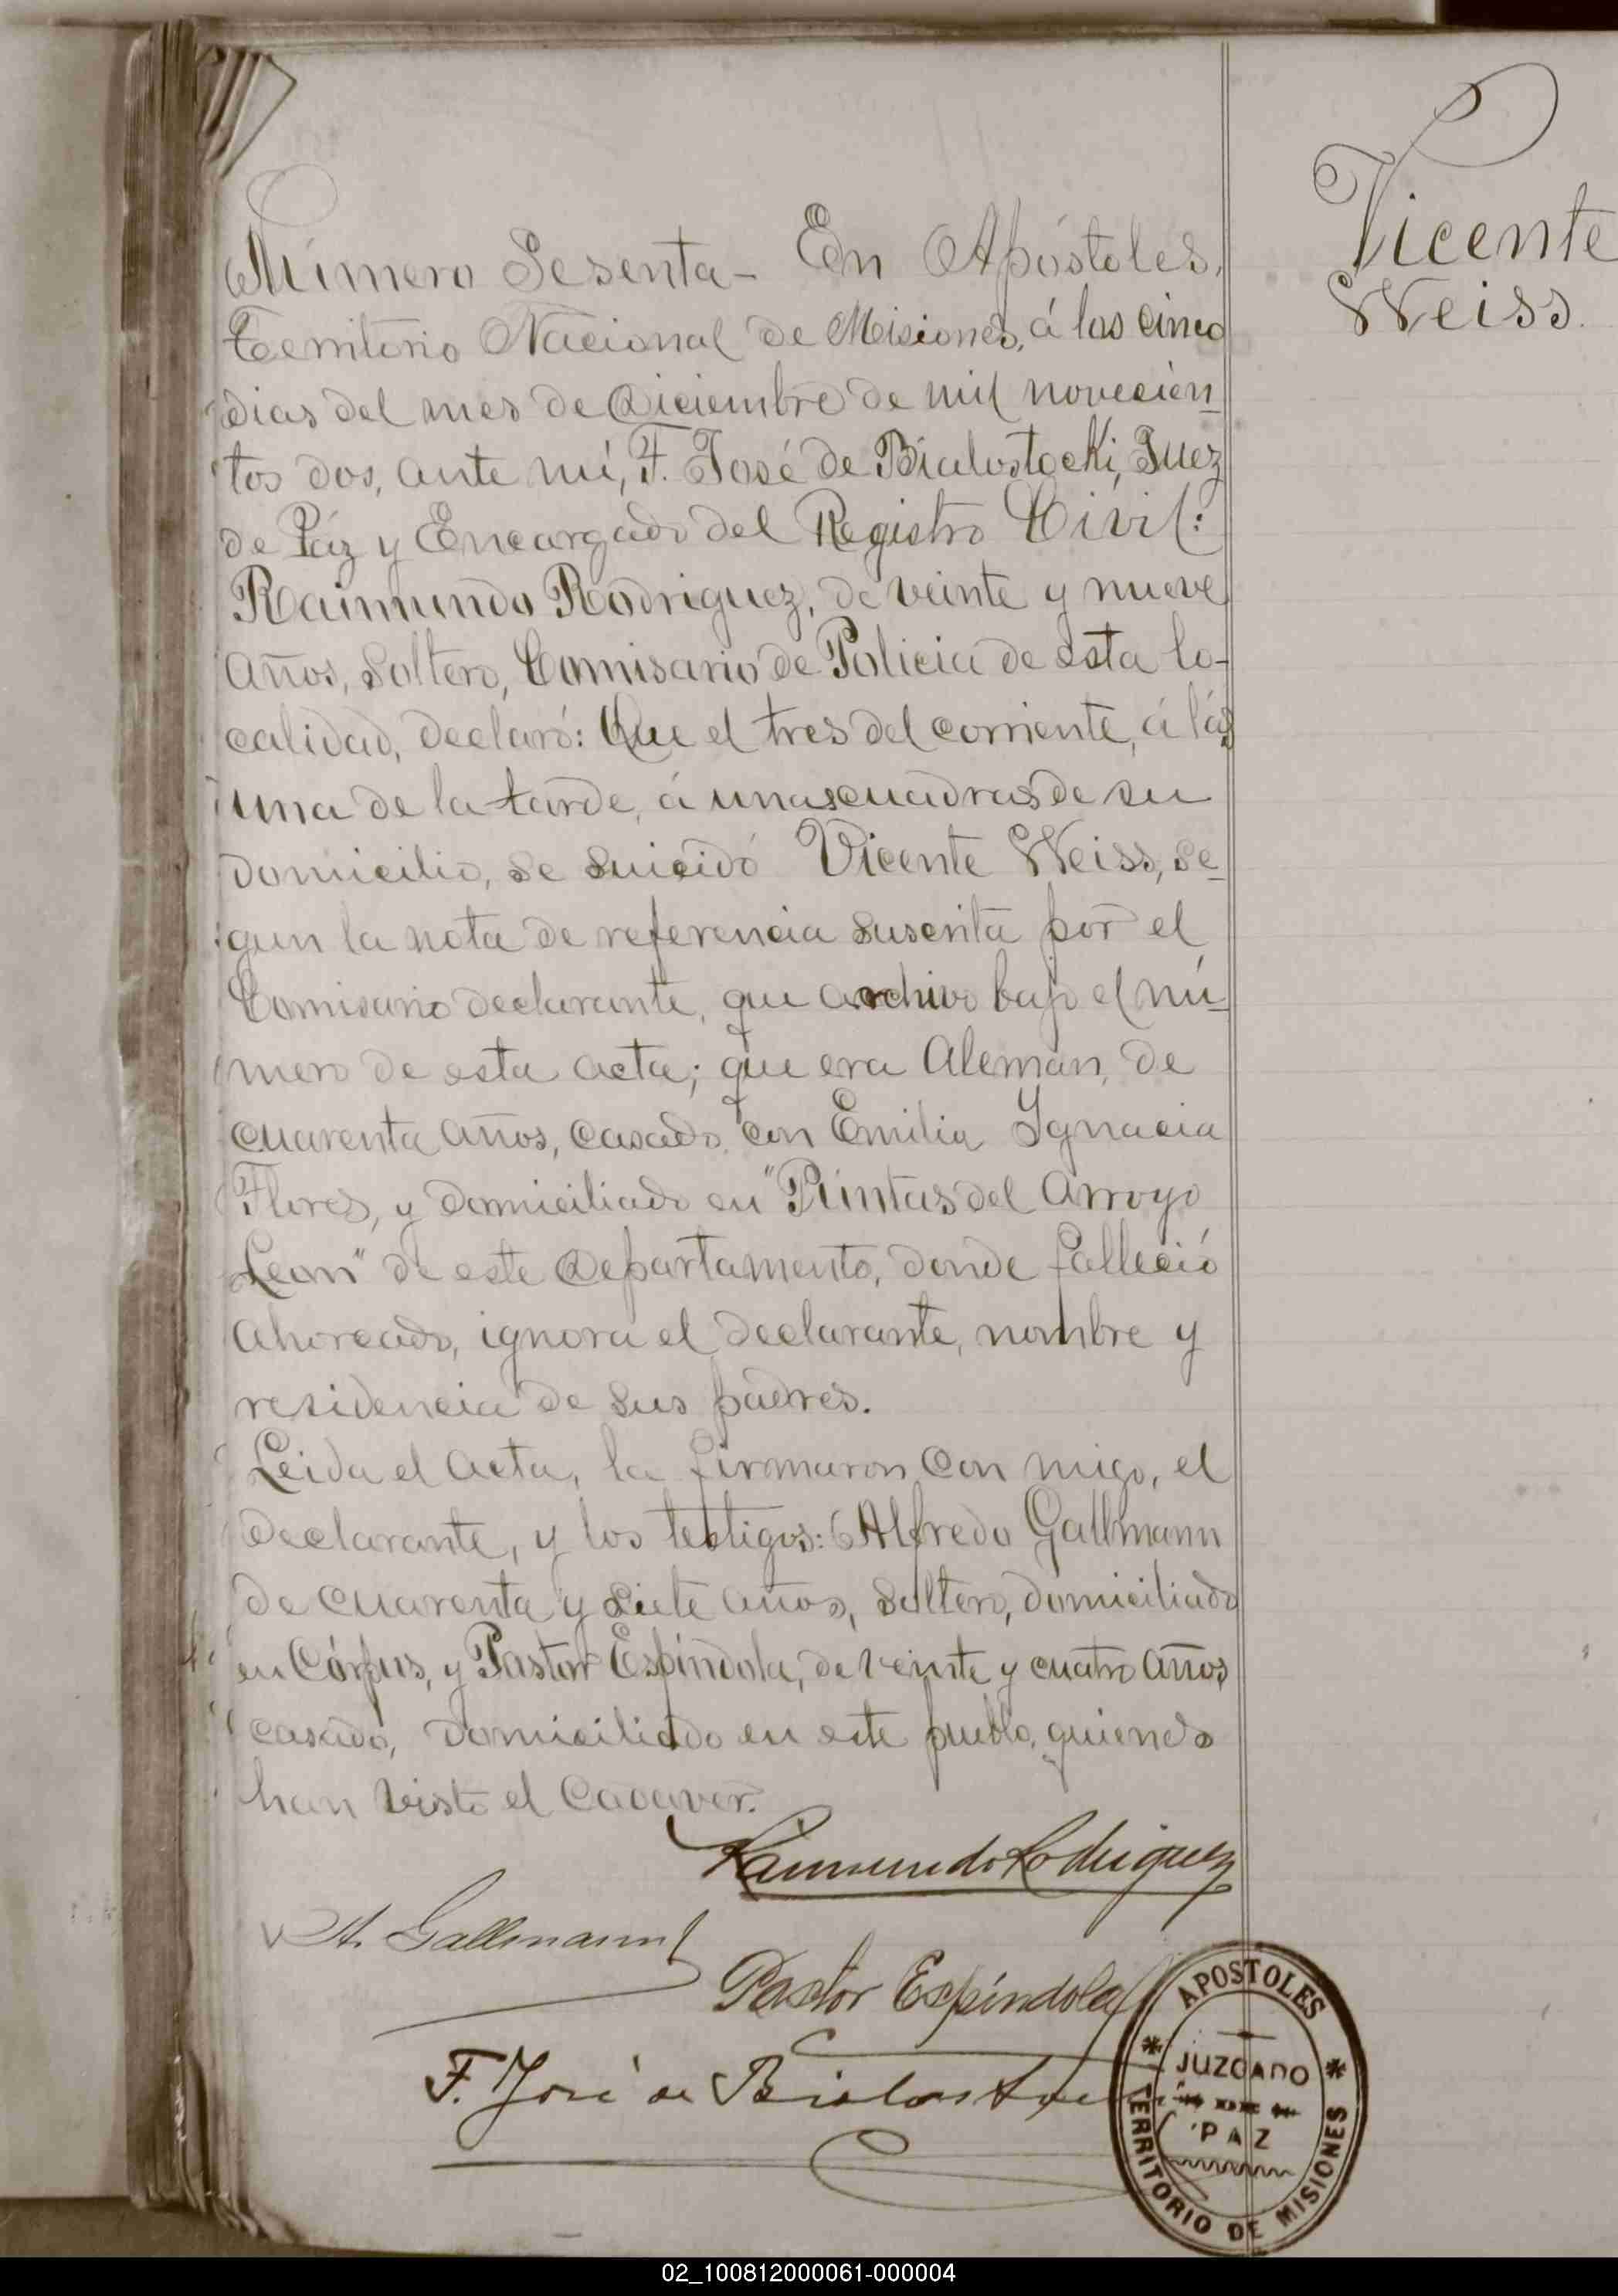 Vicente
Weiss.
Número Sesenta - En Apóstoles,
Territorio Nacional de Misiones, á los cinco
dias del mes de Diciembre de mil novecien-
tos dos, ante mí, F. José de Bialostocki, Juez
de Páz y Encargado del Registro Civil:
Raimundo Rodriguez, de veinte y nueve
años, soltero, Comisario de Policia de esta lo-
calidad, declaró: Que el tres del corriente, á lás
una de la tarde, á unas cuadras de su
domicilio, se suicidó Vicente Weiss, se-
gun la nota de referencia suscrita por el
Comisario declarante, que archivo bajo el nú-
mero de esta acta; que era Aleman, de
cuarenta años, casado con Emilia Ygnacia
Flores, y domiciliado en "Púntas del Arroyo
Leon" de este Departamento, donde falleció
ahorcado, ignora el declarante, nombre y
residencia de sus padres.
Leida el acta, la firmaron con migo, el
declarante, y los testigos: Alfredo Gallmann
de cuarenta y siete años, soltero, domiciliado
en Córpus, y Pastor Espíndola, de veinte y cuatro años
casado, domiciliado en este pueblo, quienes
han visto el cadaver.
Raimundo Rodriguez
A. Gallmann
Pastor Espíndola
F. José de
APOSTOLES
JUZGADO
PAZ
TERRITORIO DE MISIONES
02_100812000061-000004